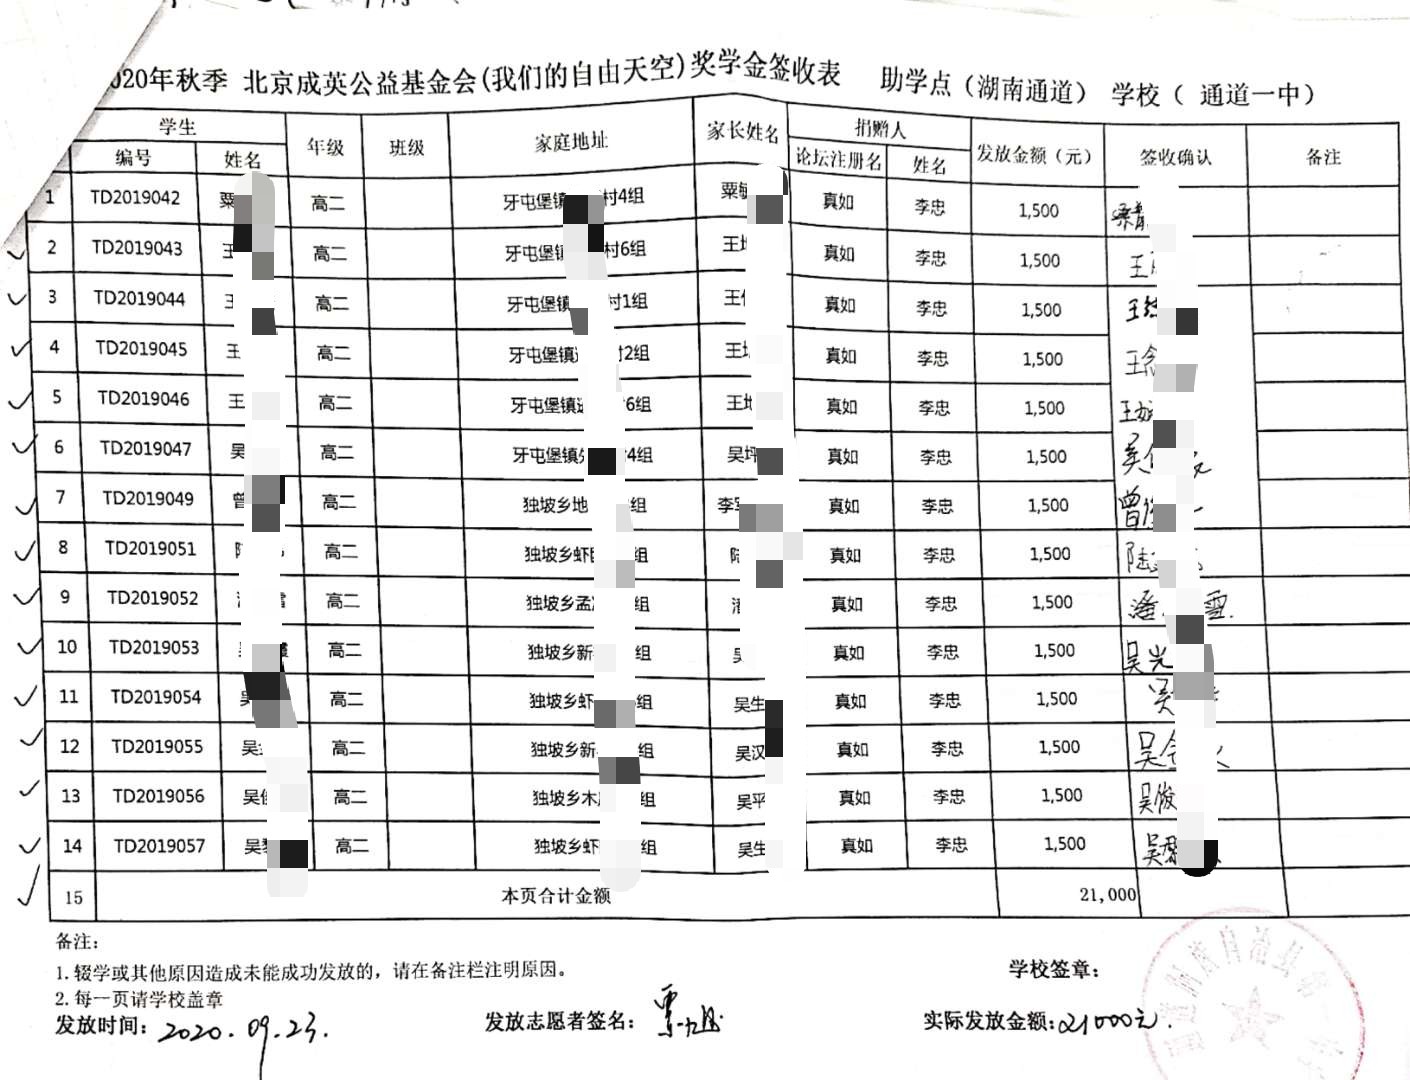 020年秋季 北京成英公益基金会(我们的自由天空)奖学金签收表 助学点（湖南通道） 学校（ 通道一中）
学生 年级 班级 家庭地址 家长姓名 捐赠人 发放金额（元） 签收确认 备注
编号 姓名 论坛注册名 姓名
1 TD2019042 粟 高二 牙屯堡镇 村4组 粟 真如 李忠 1,500
2 TD2019043 王 高二 牙屯堡镇 村6组 王 真如 李忠 1,500 王
3 TD2019044 王 高二 牙屯堡镇 村1组 王 真如 李忠 1,500 王
4 TD2019045 王 高二 牙屯堡镇 村2组 王 真如 李忠 1,500 王
5 TD2019046 王 高二 牙屯堡镇 6组 王 真如 李忠 1,500 王
6 TD2019047 吴 高二 牙屯堡镇 4组 吴坪 真如 李忠 1,500 吴
7 TD2019049 曾 高二 独坡乡地 组 李 真如 李忠 1,500 曾
8 TD2019051 高二 独坡乡虾 组 真如 李忠 1,500 陆
9 TD2019052 高二 独坡乡孟 组 真如 李忠 1,500 潘 雪
10 TD2019053 高二 独坡乡新 组 吴 真如 李忠 1,500 吴光
11 TD2019054 吴 高二 独坡乡虾 组 吴生 真如 李忠 1,500 吴
12 TD2019055 吴 高二 独坡乡新 组 吴汉 真如 李忠 1,500 吴
13 TD2019056 吴俊 高二 独坡乡木 组 吴平 真如 李忠 1,500 吴俊
14 TD2019057 吴 高二 独坡乡虾 组 吴生 真如 李忠 1,500 吴
15 本页合计金额 21,000
备注：
1.辍学或其他原因造成未能成功发放的，请在备注栏注明原因。
2.每一页请学校盖章
学校签章：
发放时间：2020.09.23. 发放志愿者签名： 实际发放金额:21000元.